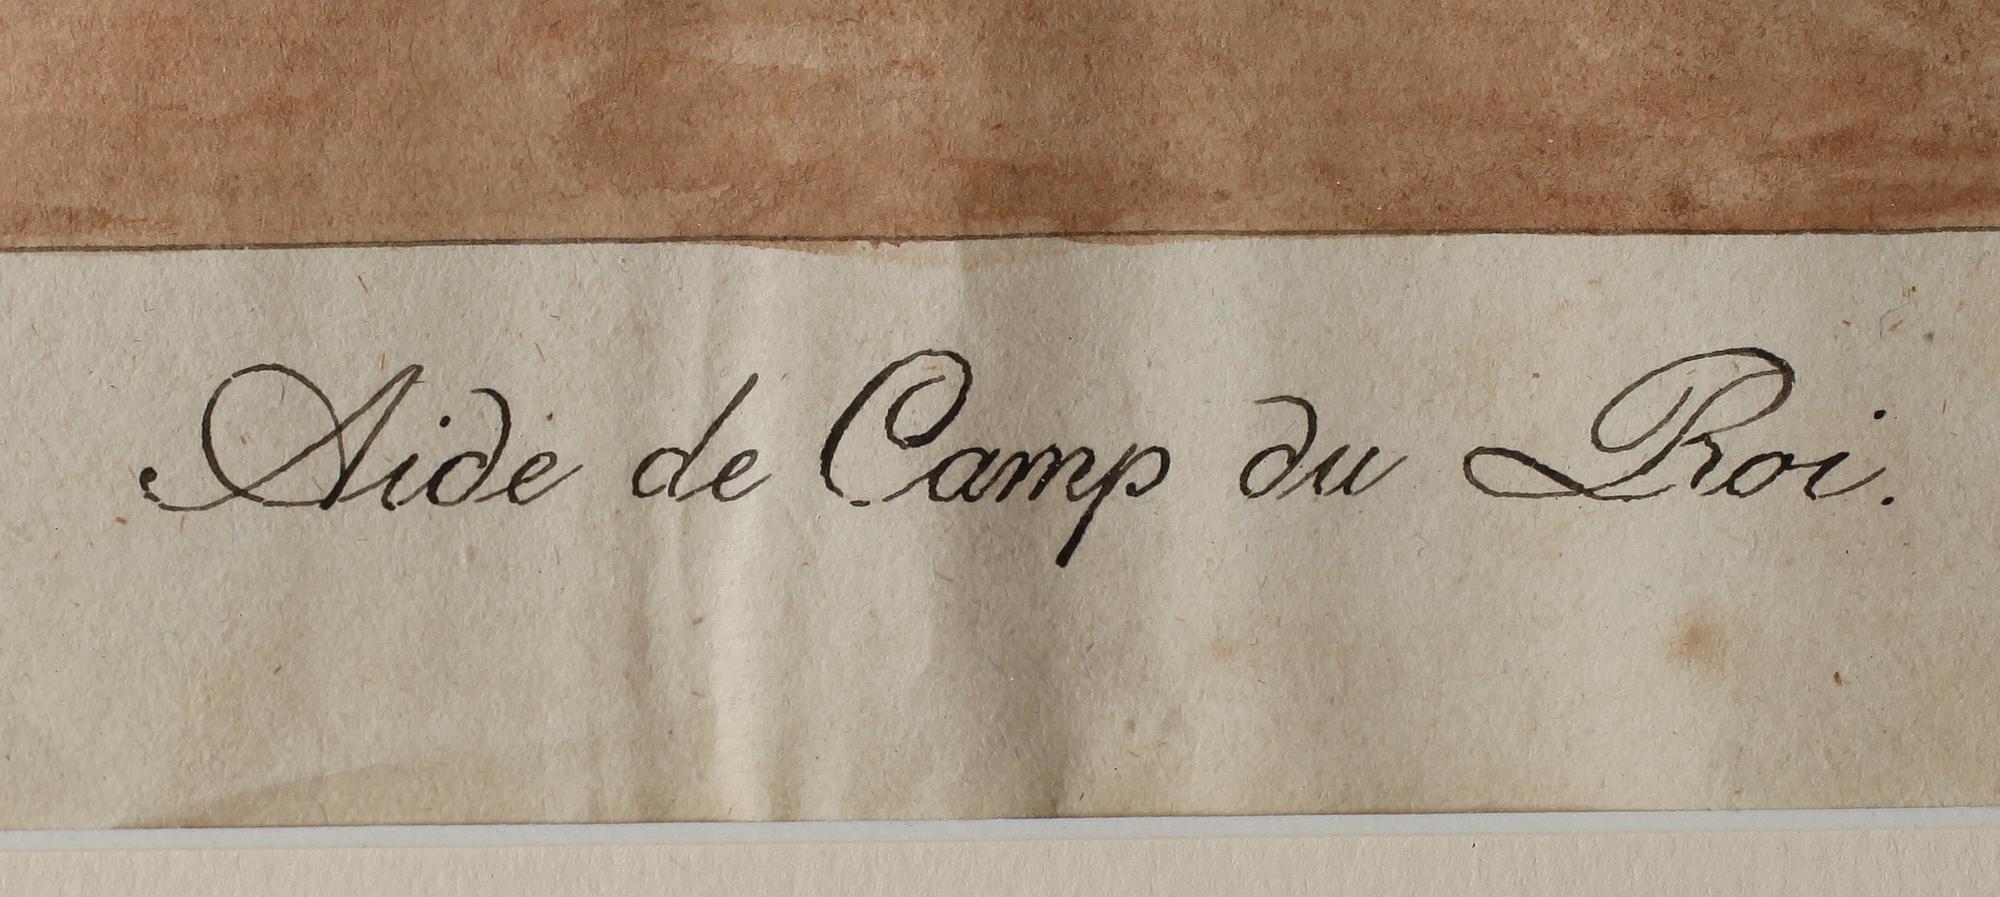 Aide de Camp du Roi.